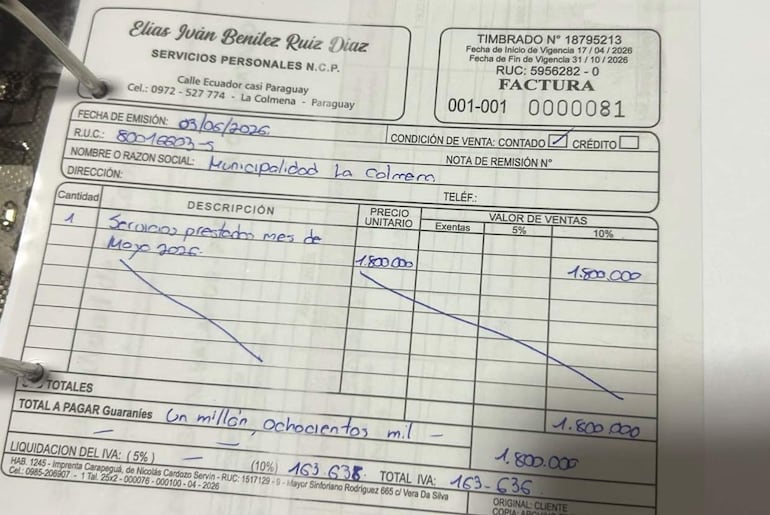 Elias Iván Benítez Ruiz Díaz
SERVICIOS PERSONALES N.C.P.
Calle Ecuador casi Paraguay
Cel.: 0972 - 527 774 - La Colmena - Paraguay
TIMBRADO N° 18795213
Fecha de Inicio de Vigencia 17 / 04 / 2026
Fecha de Fin de Vigencia 31 / 10 / 2026
RUC: 5956282 - 0
FACTURA
001-001 0000081
FECHA DE EMISIÓN: 03/06/2026
CONDICIÓN DE VENTA: CONTADO ✓ CRÉDITO
R.U.C.: 80016603-5
NOMBRE O RAZON SOCIAL: Municipalidad La Colmena
NOTA DE REMISIÓN N°
DIRECCIÓN:
TELÉF.:
Cantidad DESCRIPCIÓN PRECIO UNITARIO VALOR DE VENTAS
Exentas 5% 10%
1 Servicios prestados mes de
Mayo 2026. 1.800.000 1.800.000
TOTALES 1.800.000
TOTAL A PAGAR Guaraníes Un millón, ochocientos mil — 1.800.000
LIQUIDACION DEL IVA: (5%) — (10%) 163.636 TOTAL IVA: 163-636
HAB. 1245 - Imprenta Carapeguá, de Nicolás Cardozo Servín - RUC: 1517129 - 9 - Mayor Sinforiano Rodríguez 665 c/ Vera Da Silva
Cel.: 0985-206907 - 1 Tal. 25x2 - 000076 - 000100 - 04 - 2026
ORIGINAL: CLIENTE